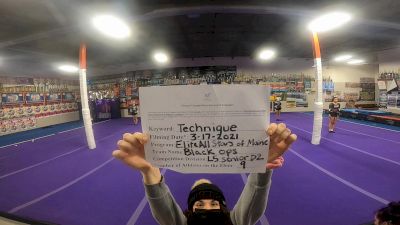 Keyword: Technique
Filming Date: 3-17-2021
Program: Elite All Stars of Maine
Team Name: Black Ops
Competitive Division: L5 Senior D2
Number of Athletes on the Floor: 9